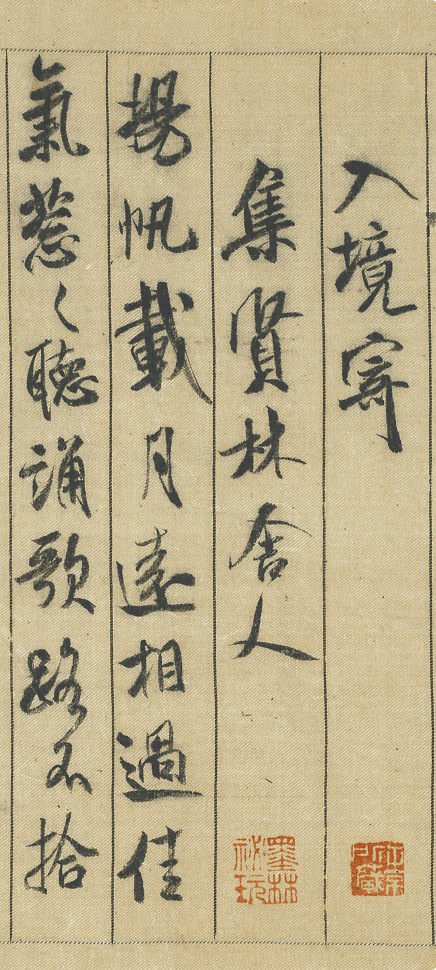 入境寄
集賢林舍人
揚帆載月遠相過佳
氣葱〻聽誦歌路不拾
墨林祕玩